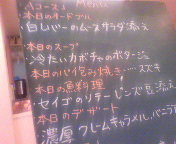 Aコース Menu
・本日のオードブル
白レバーのムースサラダ添え
・本日のスープ
・冷たいカボチャのポタージュ
・本日のパイ包み焼き……スズキ
・本日の魚料理
・セイゴのソテー ビンズ豆添え
・本日のデザート
濃厚クレームキャラメル、バニラ